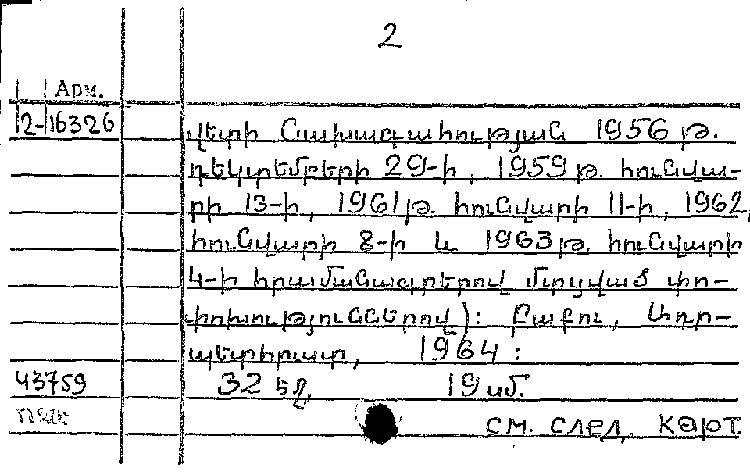 2
Арм.
2-16326
վետի Նախագահության 1956 թ.
դեկտեմբերի 29-ի, 1959 թ. հունվա-
րի 13-ի, 1961 թ. հունվարի 11-ի, 1962,
հունվարի 8-ի և 1963 թ. հունվարի
4-ի հրամանագրերով մտցված փո-
փոխություններով): Բաքու, Ադր-
պետհրատ, 1964:
43759 32 էջ, 19 սմ.
см. след. карт.